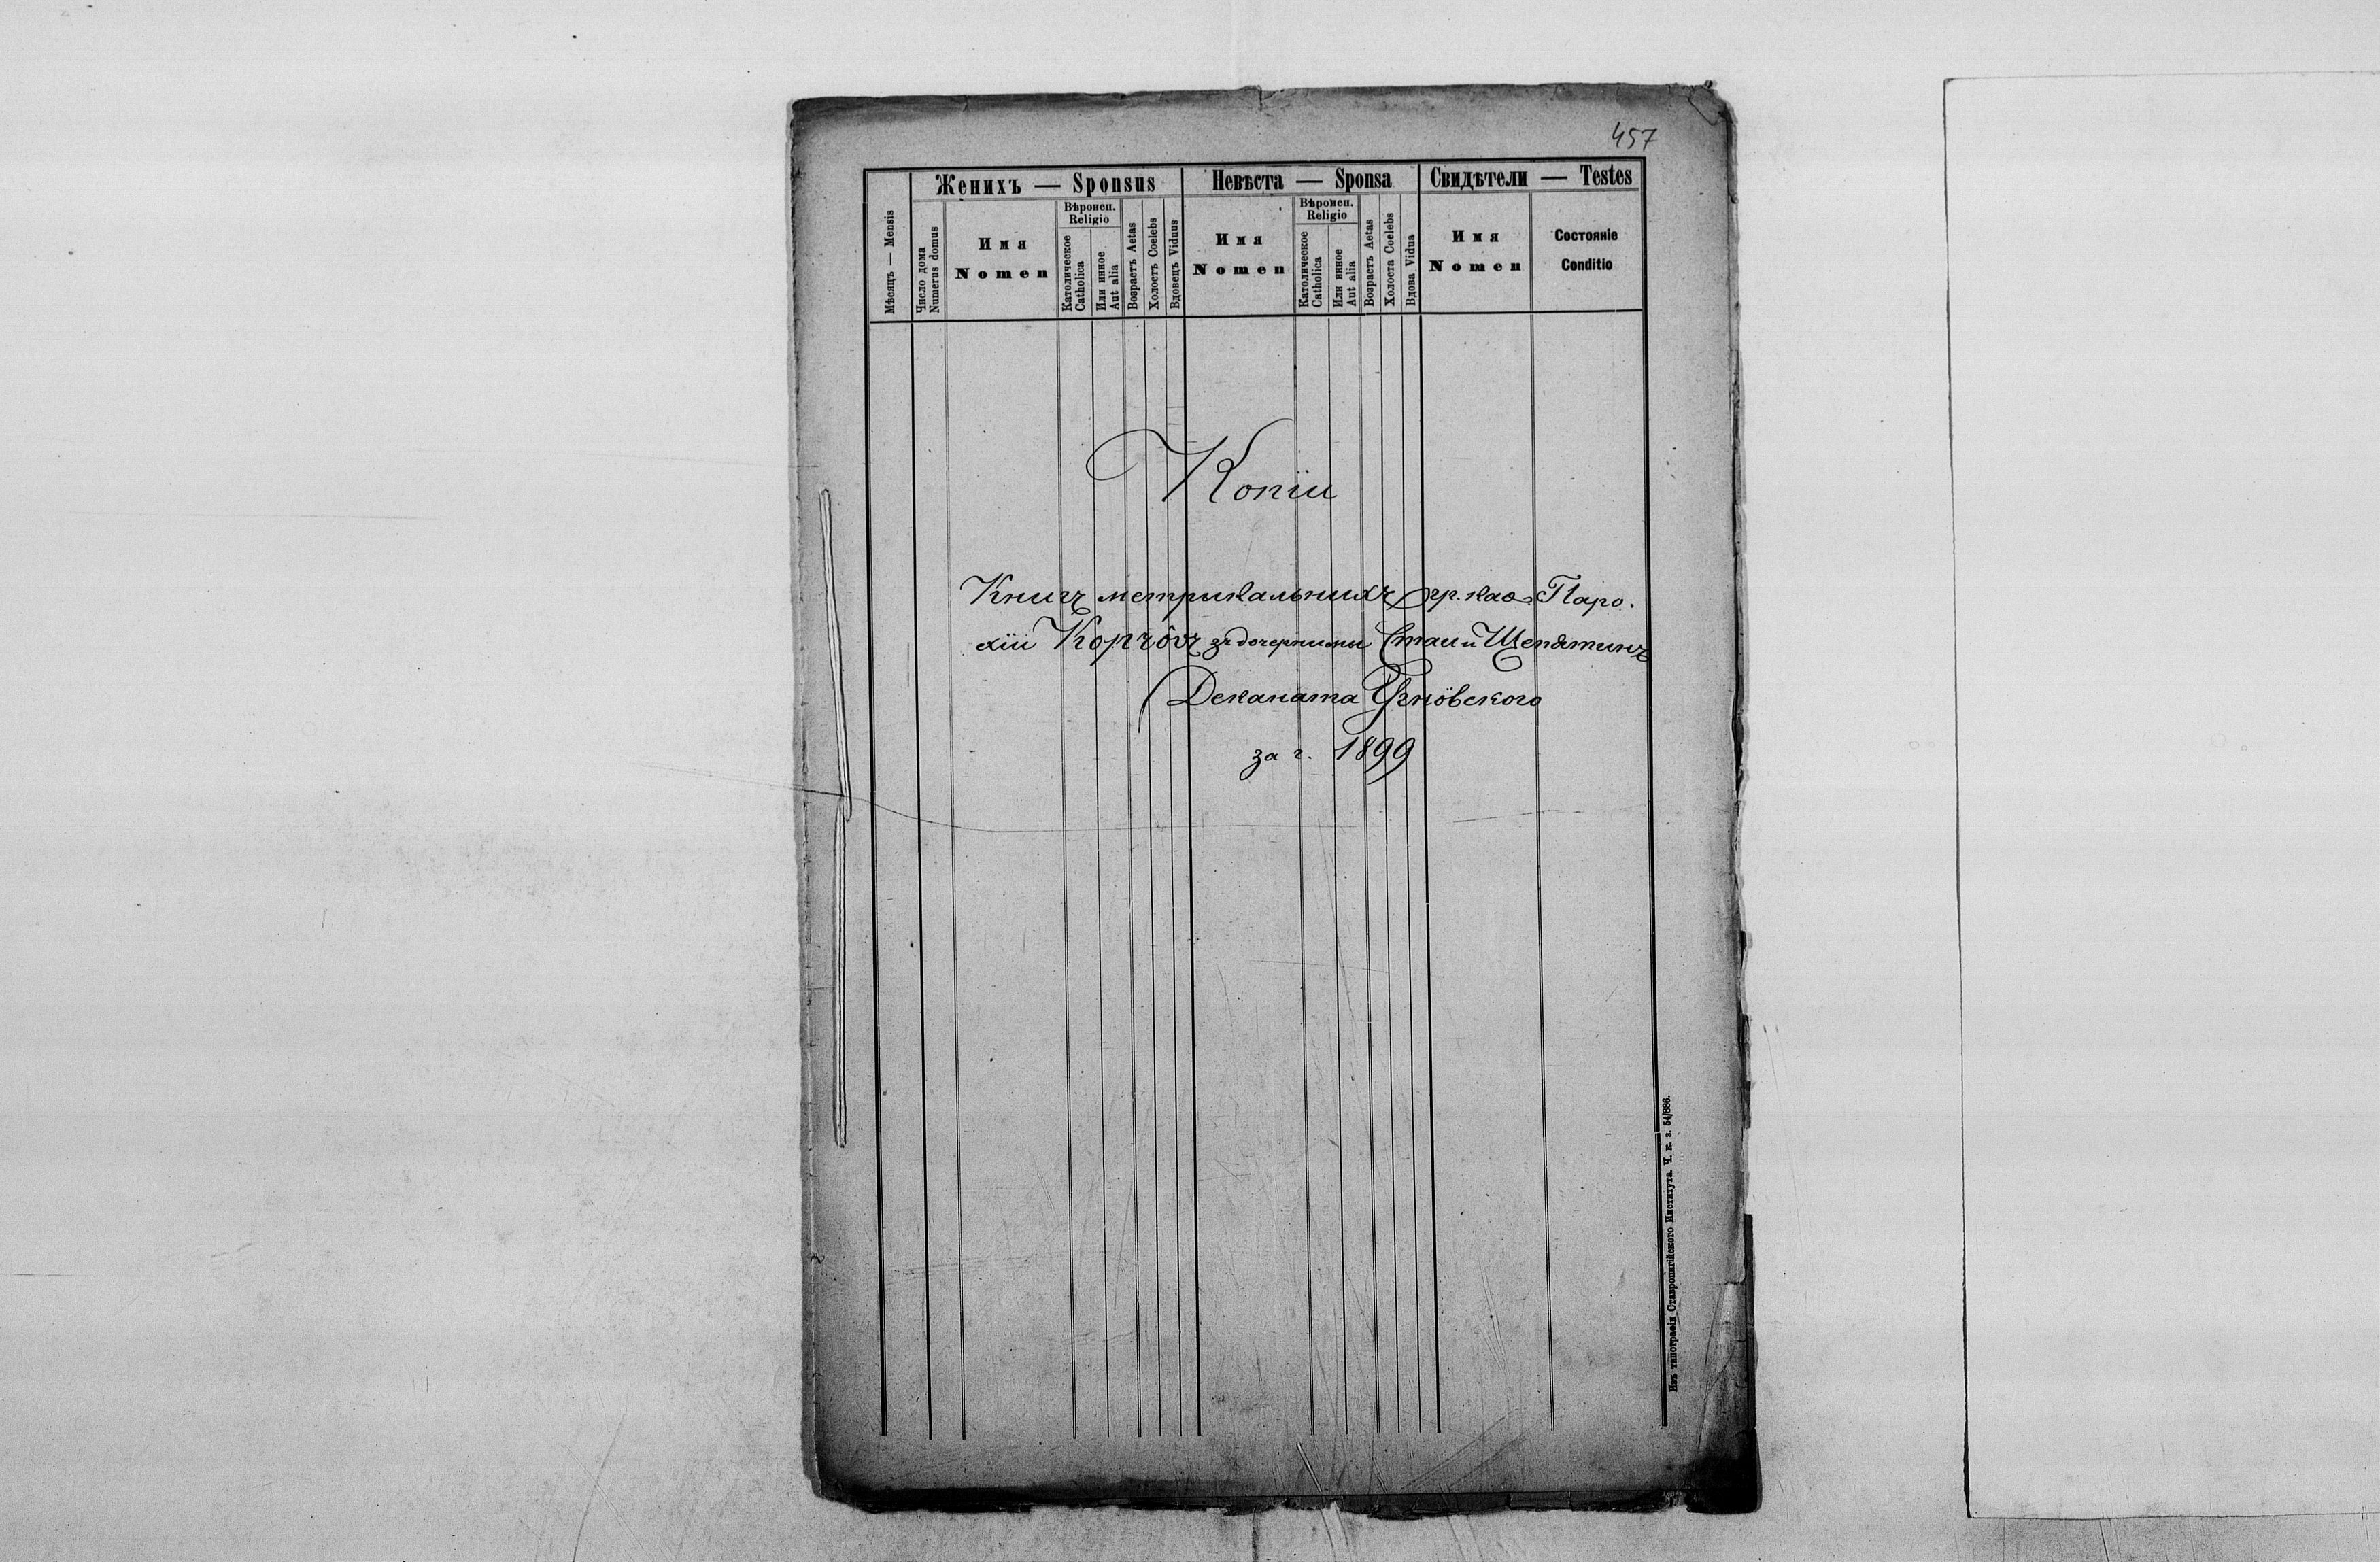 457
Женихъ — Sponsus Невѣста — Sponsa Свидѣтели — Testes
Мѣсяцъ — Mensis
Число дома
Numerus domus
Имя
Nomen
Вѣроисп.
Religio
Католическое
Catholica
Или инное
Aut alia
Возрастъ Aetas
Холостъ Coelebs
Вдовецъ Viduus
Имя
Nomen
Вѣроисп.
Religio
Католическое
Catholica
Или инное
Aut alia
Возрастъ Aetas
Холоста Coelebs
Вдова Vidua
Имя
Nomen
Состояніе
Conditio
Копіи
Книгъ метрикальнихъ гр. каѳ. Паро.
хіи Корчôвъ зъ дочерними Стаи и Щепятинъ
Деканата Угнôвского
за г. 1899
Изъ типографіи Ставропигійского Института. Ч. к. з. 54/886.